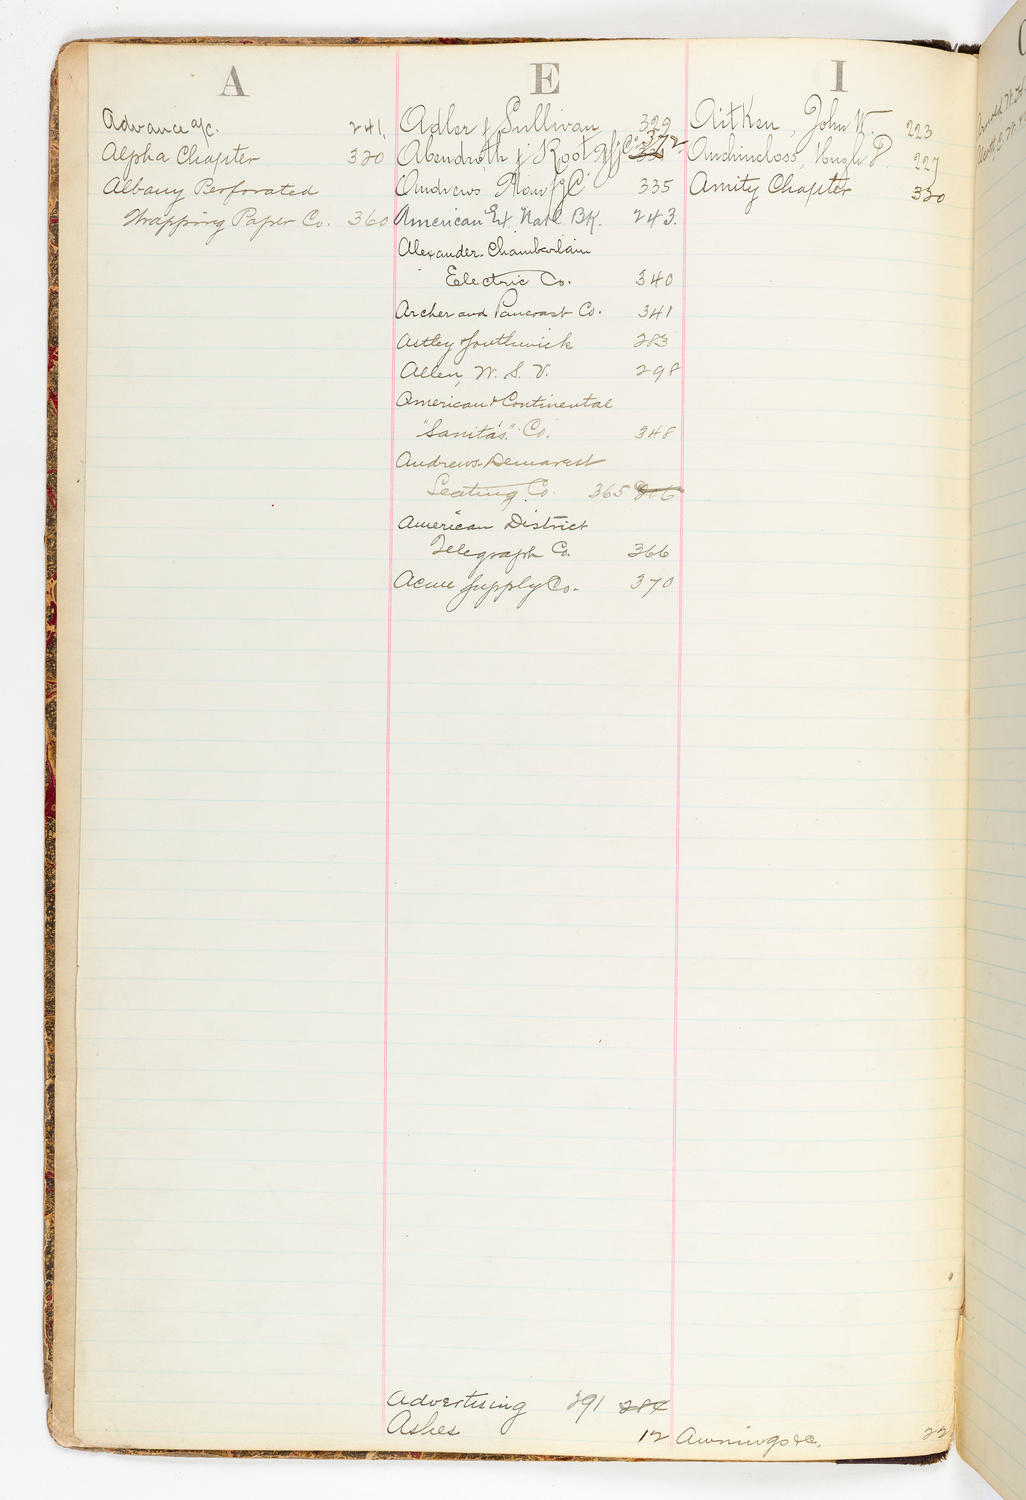 A
Advance a/c. 241.
Alpha Chapter 320
Albany Perforated
Wrapping Paper Co. 360
E
Adler & Sullivan 329
Abendroth & Root Mfg Co. 372
Andrews, How'd C 335
American Ex. Natl. Bk. 243.
Alexander-Chamberlain
Electric Co. 340
Archer and Pancoast Co. 341
Astley Southwick 283
Allen, W. S. V. 298
American & Continental
"Sanitas" Co. 348
Andrews-Demarest
Seating Co. 365 206
American District
Telegraph Co. 366
Acme Supply Co. 370
Advertising 291 284
Ashes 12
I
Aitken, John W. 223
Auchincloss, Hugh D. 227
Amity Chapter 320
Awnings &c. 22